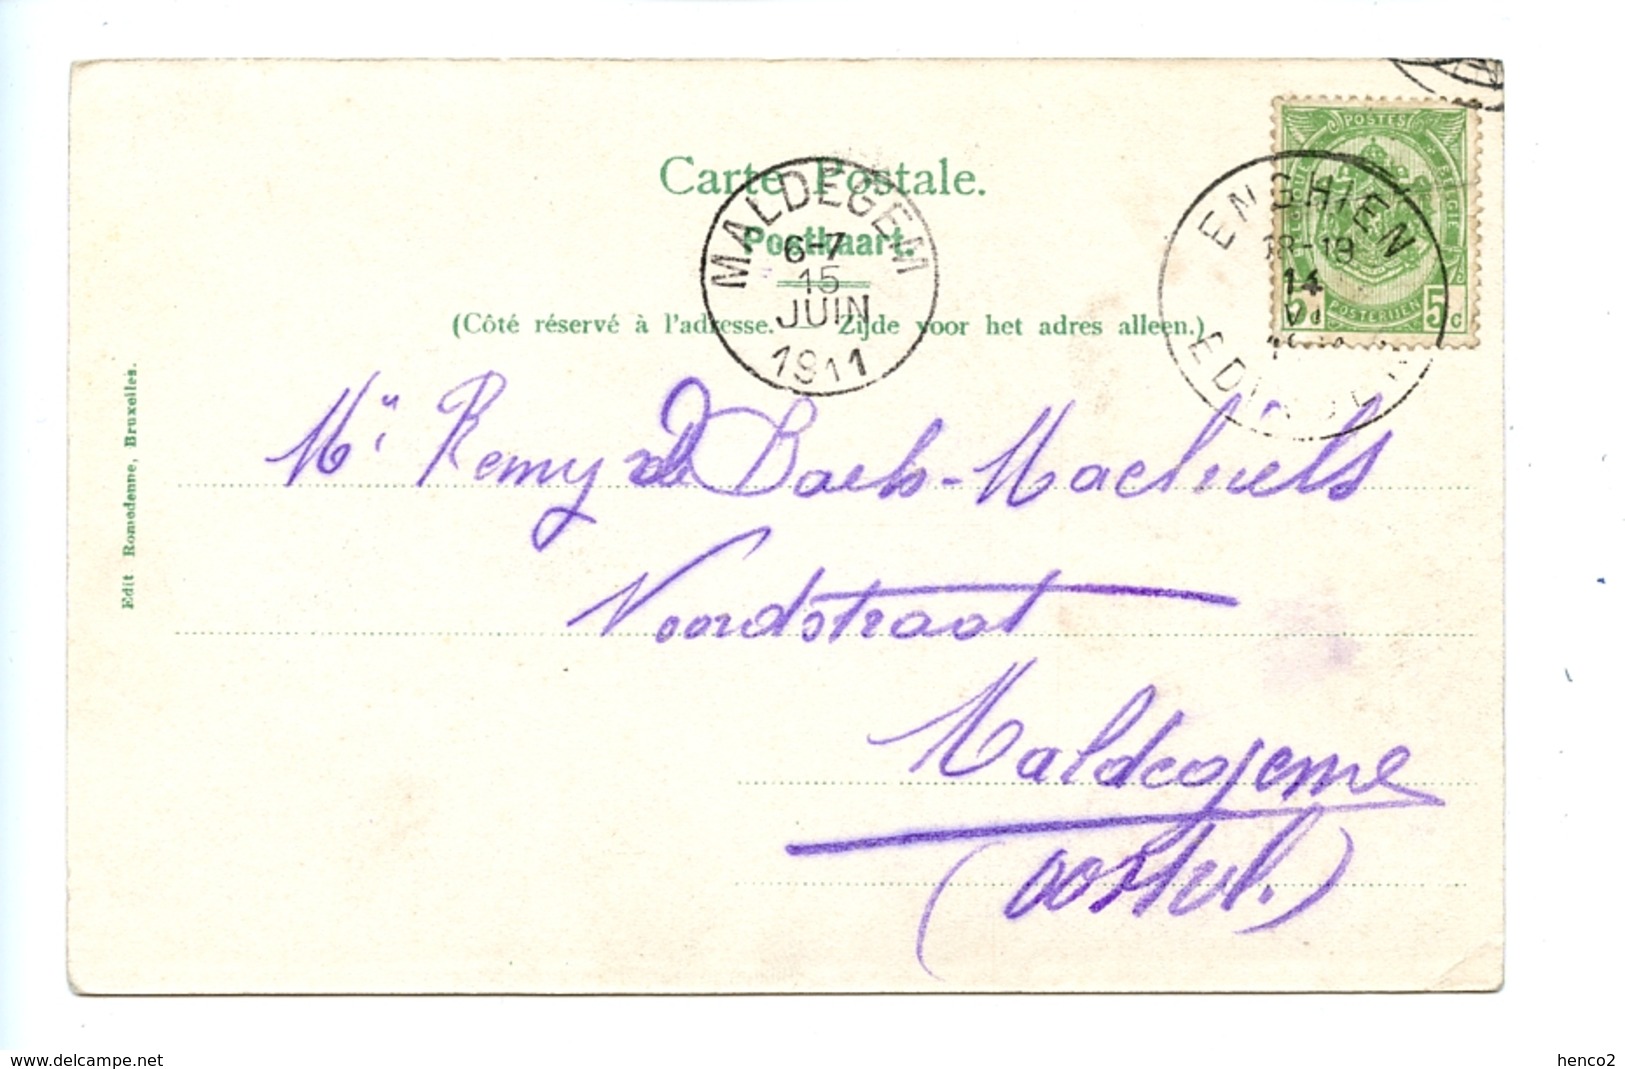 Carte Postale.
Postkaart.
(Côté réservé à l'adresse. — Zijde voor het adres alleen.)
MALDEGEM
6-7
15
JUIN
1911
ENGHIEN
18-19
14
VI
POSTES
BELGIQUE
BELGIE
5 5c
POSTERIJEN
Edit Romedenne, Bruxelles.
Mr Remy de Baets-Machiels
Noordstraat
Maldegeme
(Oostvl.)
www.delcampe.net
henco2